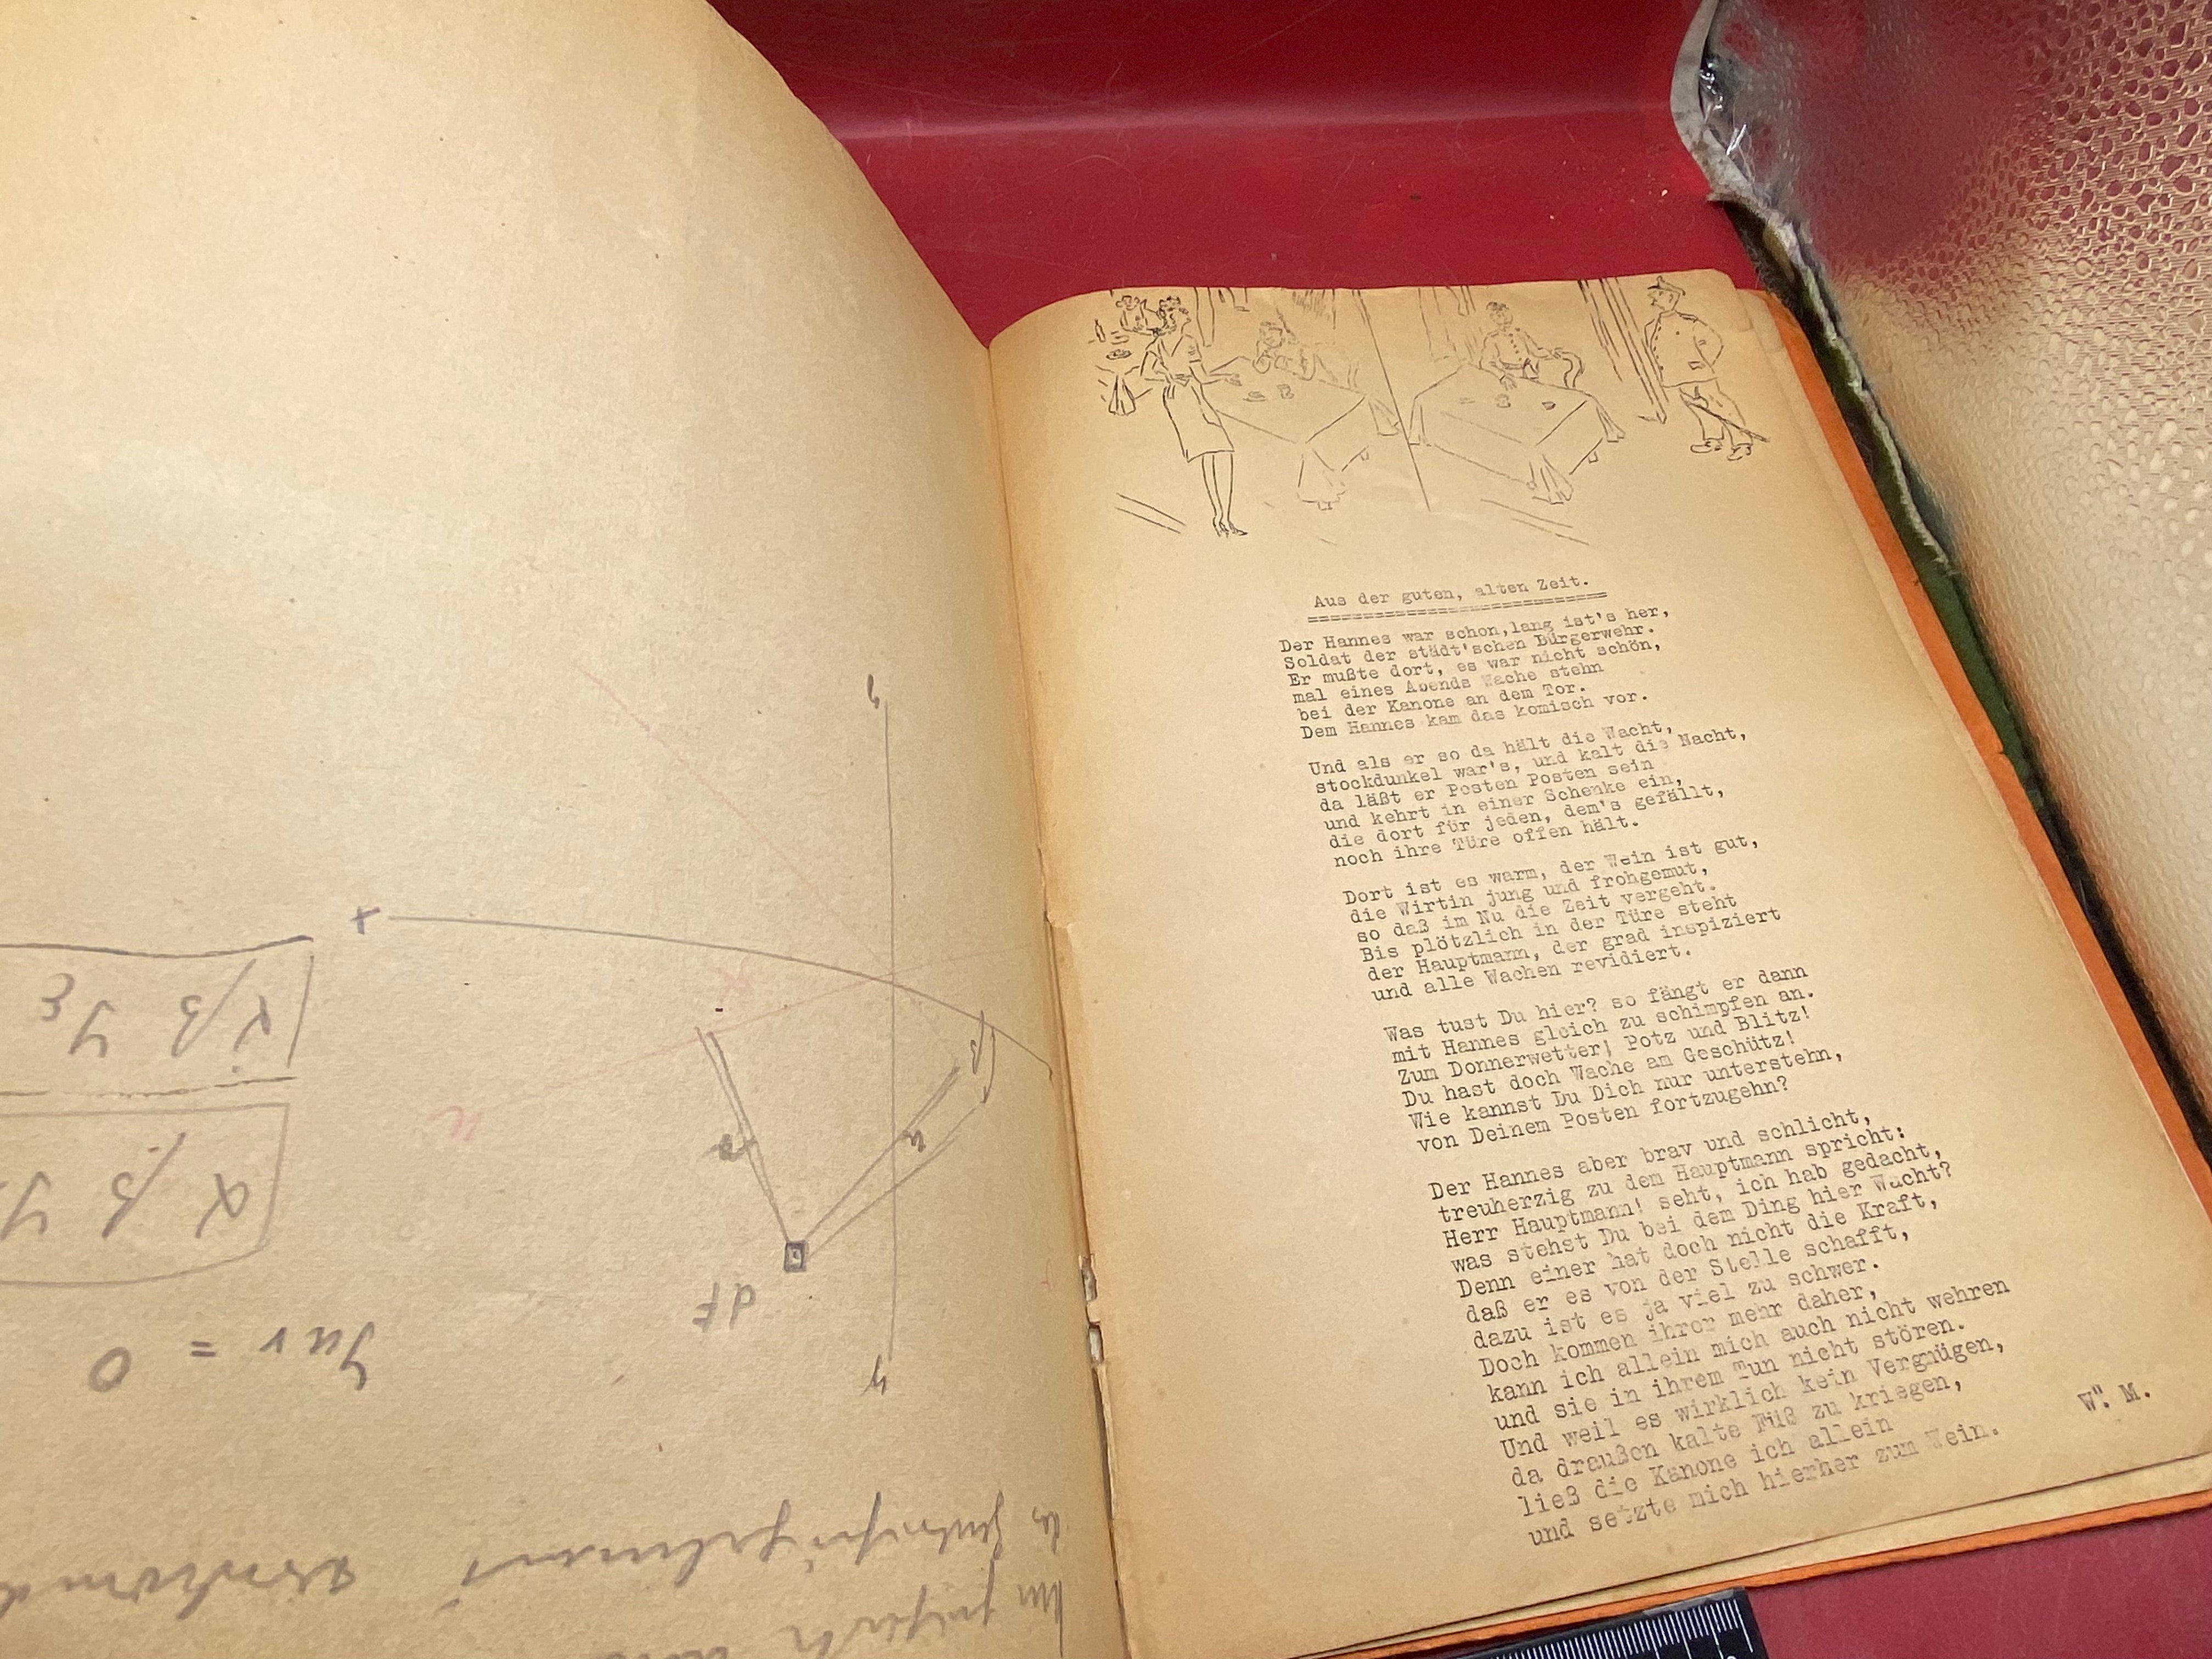 Aus der guten, alten Zeit.
Der Hannes war schon,lang ist's her,
Soldat der städt'schen Bürgerwehr.
Er mußte dort, es war nicht schön,
mal eines Abends Wache stehn
bei der Kanone an dem Tor.
Dem Hannes kam das komisch vor.
Und als er so da hält die Wacht,
stockdunkel war's, und kalt die Nacht,
da läßt er Posten Posten sein
und kehrt in einer Schenke ein,
die dort für jeden, dem's gefällt,
noch ihre Türe offen hält.
Dort ist es warm, der Wein ist gut,
die Wirtin jung und frohgemut,
so daß im Nu die Zeit vergeht.
Bis plötzlich in der Türe steht
der Hauptmann, der grad inspiziert
und alle Wachen revidiert.
Was tust Du hier? so fängt er dann
mit Hannes gleich zu schimpfen an.
Zum Donnerwetter! Potz und Blitz!
Du hast doch Wache am Geschütz!
Wie kannst Du Dich nur unterstehn,
von Deinem Posten fortzugehn?
Der Hannes aber brav und schlicht,
treuherzig zu dem Hauptmann spricht:
Herr Hauptmann! seht, ich hab gedacht,
was stehst Du bei dem Ding hier Wacht?
Denn einer hat doch nicht die Kraft,
daß er es von der Stelle schafft,
dazu ist es ja viel zu schwer.
Doch kommen ihrer mehr daher,
kann ich allein mich auch nicht wehren
und sie in ihrem Tun nicht stören.
Und weil es wirklich kein Vergnügen,
da draußen kalte Füß zu kriegen,
ließ die Kanone ich allein
und setzte mich hierher zum Wein.
W". M.
dF
Juv = 0
α β